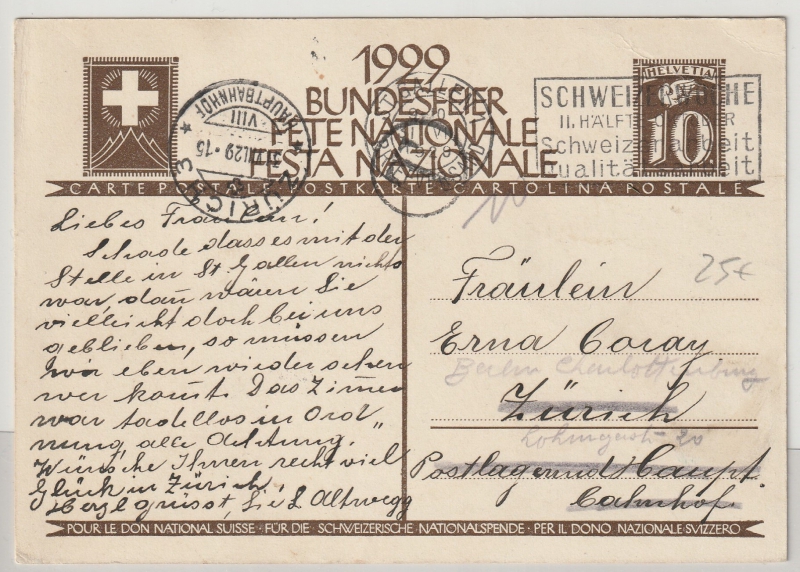 1929
BUNDESFEIER
FETE NATIONALE
FESTA NAZIONALE
HELVETIA
10
SCHWEIZERWOCHE
II. HÄLFTE OKTOBER
Schweizerarbeit
Qualitätsarbeit
ZÜRICH 3
VIII.29.15
HAUPTBAHNHOF
CARTE POSTALE POSTKARTE CARTOLINA POSTALE
Liebes Fräulein!
Schade dass es mit der
Stelle in St Gallen nichts
war, dan wären Sie
vielleicht doch bei uns
geblieben, so müssen
wir eben wieder sehen
wer komt. Das Zimmer
war tadellos in Ord
nung, alle Achtung."
Wünsche Ihnen recht viel
Glück in Zürich,
Herzl grüsst, Sie L Altwegg
25€
Fräulein
Erna Coray
Berlin Charlottenburg
Zürich
20
Postlagernd Haupt
bahnhof.
POUR LE DON NATIONAL SUISSE · FÜR DIE SCHWEIZERISCHE NATIONALSPENDE · PER IL DONO NAZIONALE SVIZZERO